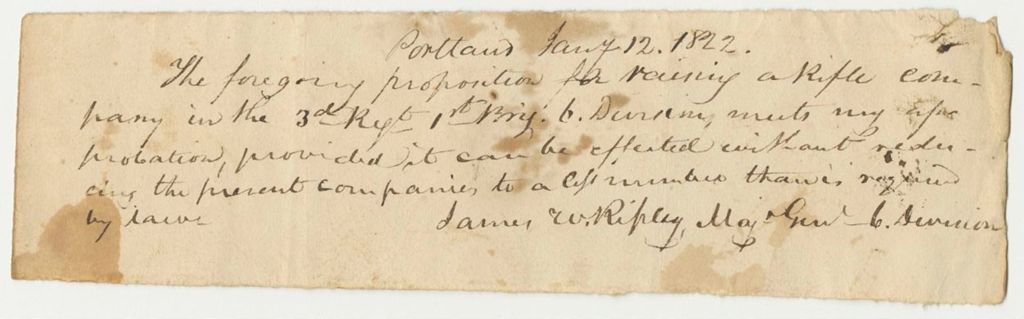 Portland Jany 12. 1822.
The foregoing proposition for raising a Rifle com-
pany in the 3d Regt 1st Brig. 6. Division, meets my ap-
probation, provided it can be effected without redu-
cing the present companies to a less number than is required
by law.
James W. Ripley, Majr Genl 6. Division